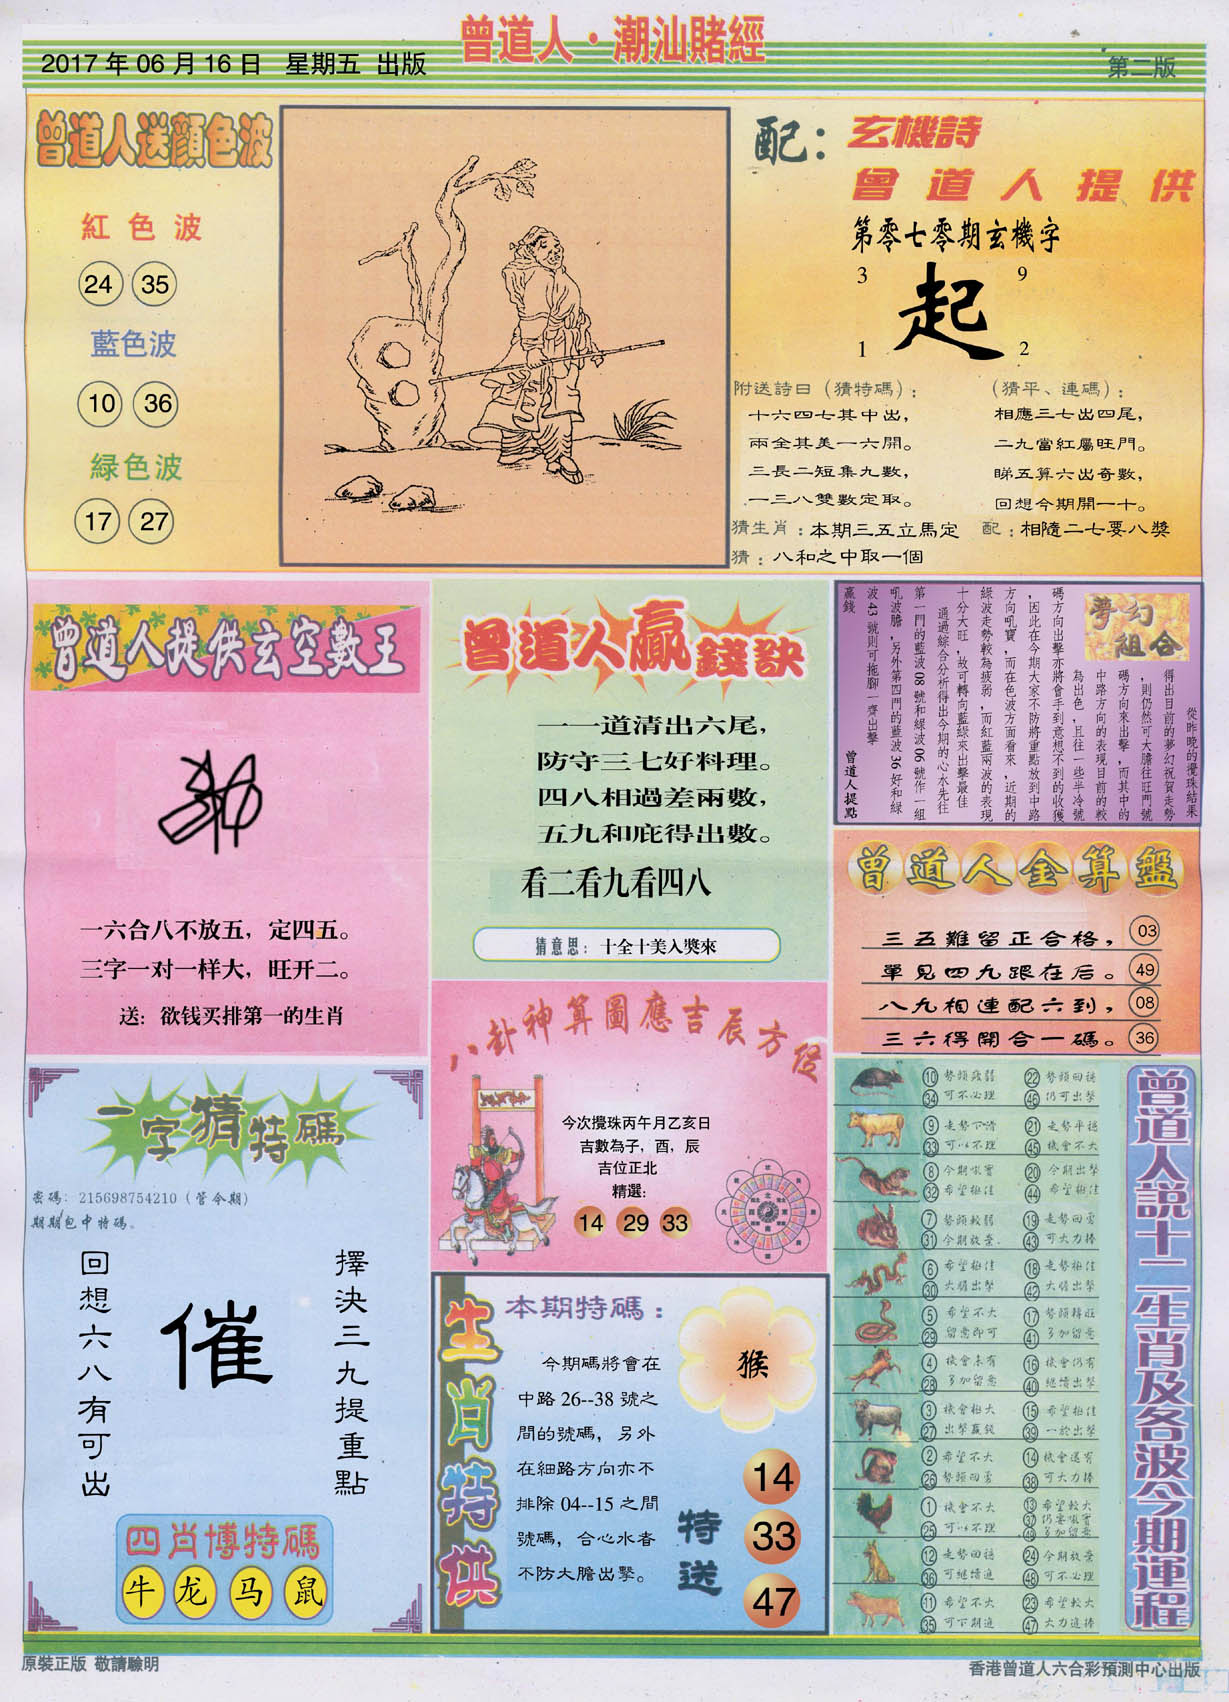 曾道人·潮汕賭經
2017 年 06 月 16 日 星期五 出版
第二版
曾道人送顏色波
紅色波
24 35
藍色波
10 36
緑色波
17 27
配：玄機詩
曾道人提供
第零七零期玄機字
3 9
起
1 2
附送詩曰（猜特碼）：
十六四七其中出，
兩全其美一六開。
三長二短集九數，
一三八雙數定取。
（猜平、連碼）：
相應三七出四尾，
二九當紅屬旺門。
睇五算六出奇數，
回想今期開一十。
猜生肖：本期三五立馬定
配：相隨二七要八獎
猜：八和之中取一個
曾道人提供玄空數王
一六合八不放五，定四五。
三字一对一样大，旺开二。
送：欲钱买排第一的生肖
曾道人贏錢訣
一一道清出六尾，
防守三七好料理。
四八相過差兩數，
五九和庇得出數。
看二看九看四八
猜意思：十全十美入獎來
夢幻
組合
從昨晚的攪珠結果
得出目前的夢幻祝賀走勢
，則仍然可大膽往旺門號
碼方向來出擊，而其中的
中路方向的表現目前的較
為出色，且往一些半冷號
碼方向出擊亦將會手到意想不到的收獲
，因此在今期大家不防將重點放到中路
方向吼寶，而在色波方面看來，近期的
綠波走勢較為疲弱，而紅藍兩波的表現
十分大旺，故可轉向藍綠來出擊最佳
通過綜合分析得出今期的心水先往
第一門的藍波 08 號和綠波 06 號作一組
吼波膽，另外第四門的藍波 36 好和綠
波 43 號則可拖腳一齊出擊
贏錢
曾道人提點
曾道人金算盤
三五難留正合格， 03
單見四九跟在后。 49
八九相連配六到， 08
三六得開合一碼。 36
八卦神算圖應吉辰方位
今次攪珠丙午月乙亥日
吉數為子，酉，辰
吉位正北
精選：
14 29 33
一字猜特碼
密碼：215698754210（管今期）
期期包中特碼。
擇決三九提重點
催
回想六八有可出
四肖博特碼
牛 龙 马 鼠
生肖特供
本期特碼：
今期碼將會在
中路 26--38 號之
間的號碼，另外
在細路方向亦不
排除 04--15 之間
號碼，合心水者
不防大膽出擊。
猴
特送
14
33
47
曾道人說十二生肖及各波今期運程
10 34 勢頭疲弱 可不必理 22 46 勢頭回穩 仍可出擊
9 33 走勢下滑 可以不理 21 45 走勢平穩 機會不大
8 32 今期吼寶 希望極佳 20 44 今期出擊 希望極佳
7 31 勢頭較弱 今期放棄 19 43 走勢回勇 可大力捧
6 30 希望極佳 大膽出擊 18 42 走勢極佳 大膽出擊
5 29 希望不大 留意即可 17 41 勢頭轉旺 多加留意
4 28 機會未有 多加留意 16 40 機會仍有 繼續出擊
3 27 機會極大 出擊贏錢 15 39 希望極佳 一於出擊
2 26 希望不大 勢頭回勇 14 38 機會還有 可大力捧
1 25 機會不大 可以不理 13 37 49 希望較大 仍要吼寶 多加留意
12 36 走勢回穩 可繼續追 24 48 今期放棄 可不必理
11 35 希望不大 可下期追 23 47 希望較大 大力追捧
原裝正版 敬請驗明
香港曾道人六合彩預測中心出版